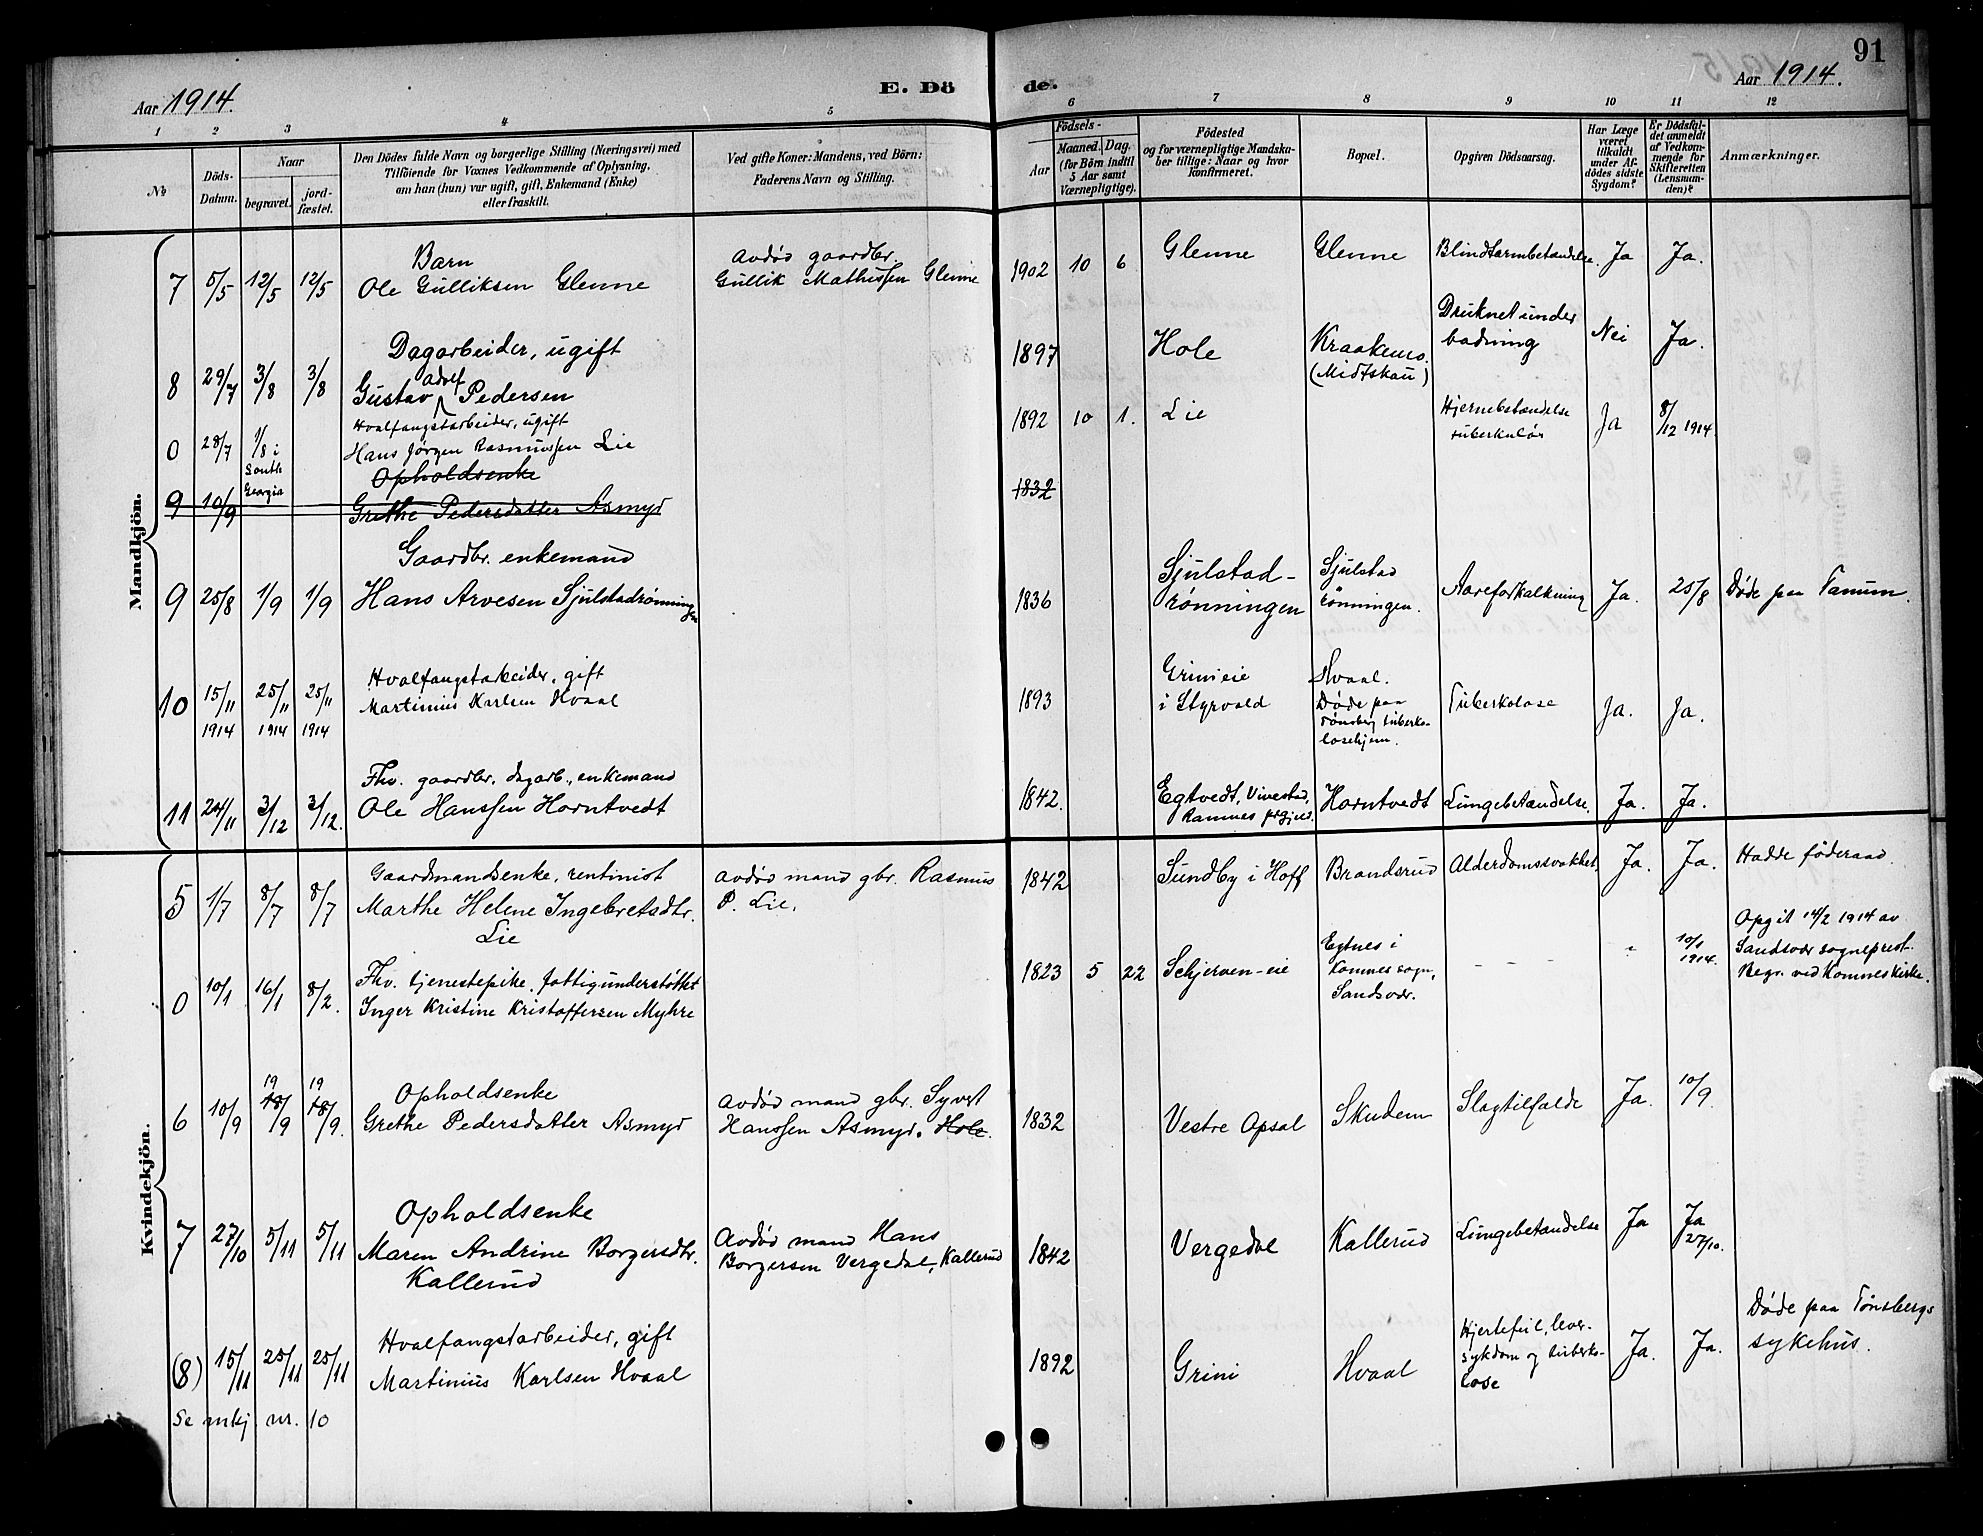 91
Aar 1914.
E. Dö
de.
Aar 1914.
1 2 3 4 5 6 7 8 9 10 11 12
No
Döds-
Datum.
Naar
begravet.
jord-
fæstet.
Den Dödes fulde Navn og borgerlige Stilling (Næringsvei) med
Tilföiende for Voxnes Vedkommende af Oplysning,
om han (hun) var ugift, gift, Enkemand (Enke)
eller fraskilt.
Ved gifte Koner: Mandens, ved Börn:
Faderens Navn og Stilling.
Födsels-
Aar
Maaned. Dag.
(for Börn indtil
5 Aar samt
Værnepligtige).
Födested
og for værnepligtige Mandska-
ber tillige: Naar og hvor
konfirmeret.
Bopæl.
Opgiven Dödsaarsag.
Har Læge
været
tilkaldt
under Af-
dödes sidste
Sygdom?
Er Dödsfal-
det anmeldt
af Vedkom-
mende for
Skifteretten
(Lensman-
den)?
Anmærkninger.
Mandkjön.
Barn
avdød gaardbr.
7 5/5 12/5 12/5 Ole Gulliksen Glenne Gullik Mathissen Glenne 1902 10 6 Glenne Glenne Blindtarmbetændelse. Ja Ja.
Dagarbeider, ugift
adolf
8 29/7 3/8 3/8 Gustav Pedersen 1897 Hole Kraakemo. Druknet under Nei Ja.
(Midtskau) badning
Hvalfangstarbeider, ugift
0 28/7 1/8 i Hans Jørgen Rasmussen Lie 1892 10 1. Lie Hjernebetændelse Ja 8/12 1914.
South tuberkuløs
Georgia
Opholdsenke
9 10/9 Grethe Pedersdatter Asmyr 1832
Gaardbr. enkemand
9 25/8 1/9 1/9 Hans Arvesen Sjulstadrønningen 1836 Sjulstad- Sjulstad Aareforkalkning Ja. 25/8 Døde paa Tanum.
rønningen rønningen.
Hvalfangstarbeider, gift
10 15/11 25/11 25/11 Martinius Karlsen Hvaal 1893 Grimeie Hvaal. Tuberkolose Ja. Ja.
1914 1914 1914 i Styrvold Døde paa
Tønsberg tuberko-
losehjem.
Fhv. gaardbr. dagarb., enkemand
11 24/11 3/12 3/12. Ole Hanssen Horntvedt 1842. Egtvedt, Vivestad, Horntvedt Lungebetændelse. Ja. Ja.
Ramnes prgjeld.
Kvindekjön.
Gaardmandsenke, rentinist avdød mand gbr. Rasmus
5 1/7 8/7 8/7 Marthe Helene Ingebretsdtr. P. Lie. 1842 Sundby i Hoff Brandsrud Alderdomssvakhet. Ja. Ja. Hadde føderaad.
Lie
Fhv. tjenestepike, fattigunderstøttet
0 10/1 16/1 8/2. Inger Kristine Kristoffersen Myhre 1823 5 22 Schjerven-eie Egtnes i - - - - 10/1 1914. Opgit 14/2 1914 av
Komnes sogn, Sandsvær sogneprest.
Sandsvær. Begr. ved Komnes kirke.
Opholdsenke avdød mand gbr. Syvert
19 19
6 10/9 18/9 18/9. Grethe Pedersdatter Asmyr Hanssen Asmyr. Hole. 1832 Vestre Opsal Skudem Slagtilfælde Ja. 10/9.
Opholdsenke
7 27/10 5/11 5/11 Maren Andrine Borgersdtr. Avdød mand Hans 1842 Vergedal Kallerud Lungebetændelse Ja Ja 27/10.
Kallerud Borgersen Vergedal, Kallerud
Hvalfangstarbeider, gift
(8) 15/11 25/11 25/11 Martinius Karlsen Hvaal 1892 Grini Hvaal Hjertefeil, lever- Ja. Ja. Døde paa Tønsbergs
sykdom og tuberko- sykehus.
lose
Se mkj. nr. 10